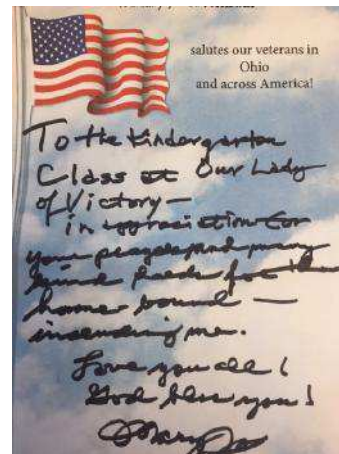 salutes our veterans in
Ohio
and across America!
To the Kindergarten
Class at Our Lady
of Victory —
in appreciation for
your prayers and many
kind deeds for the
home bound —
including me.
Love you all!
God bless you!
Mary